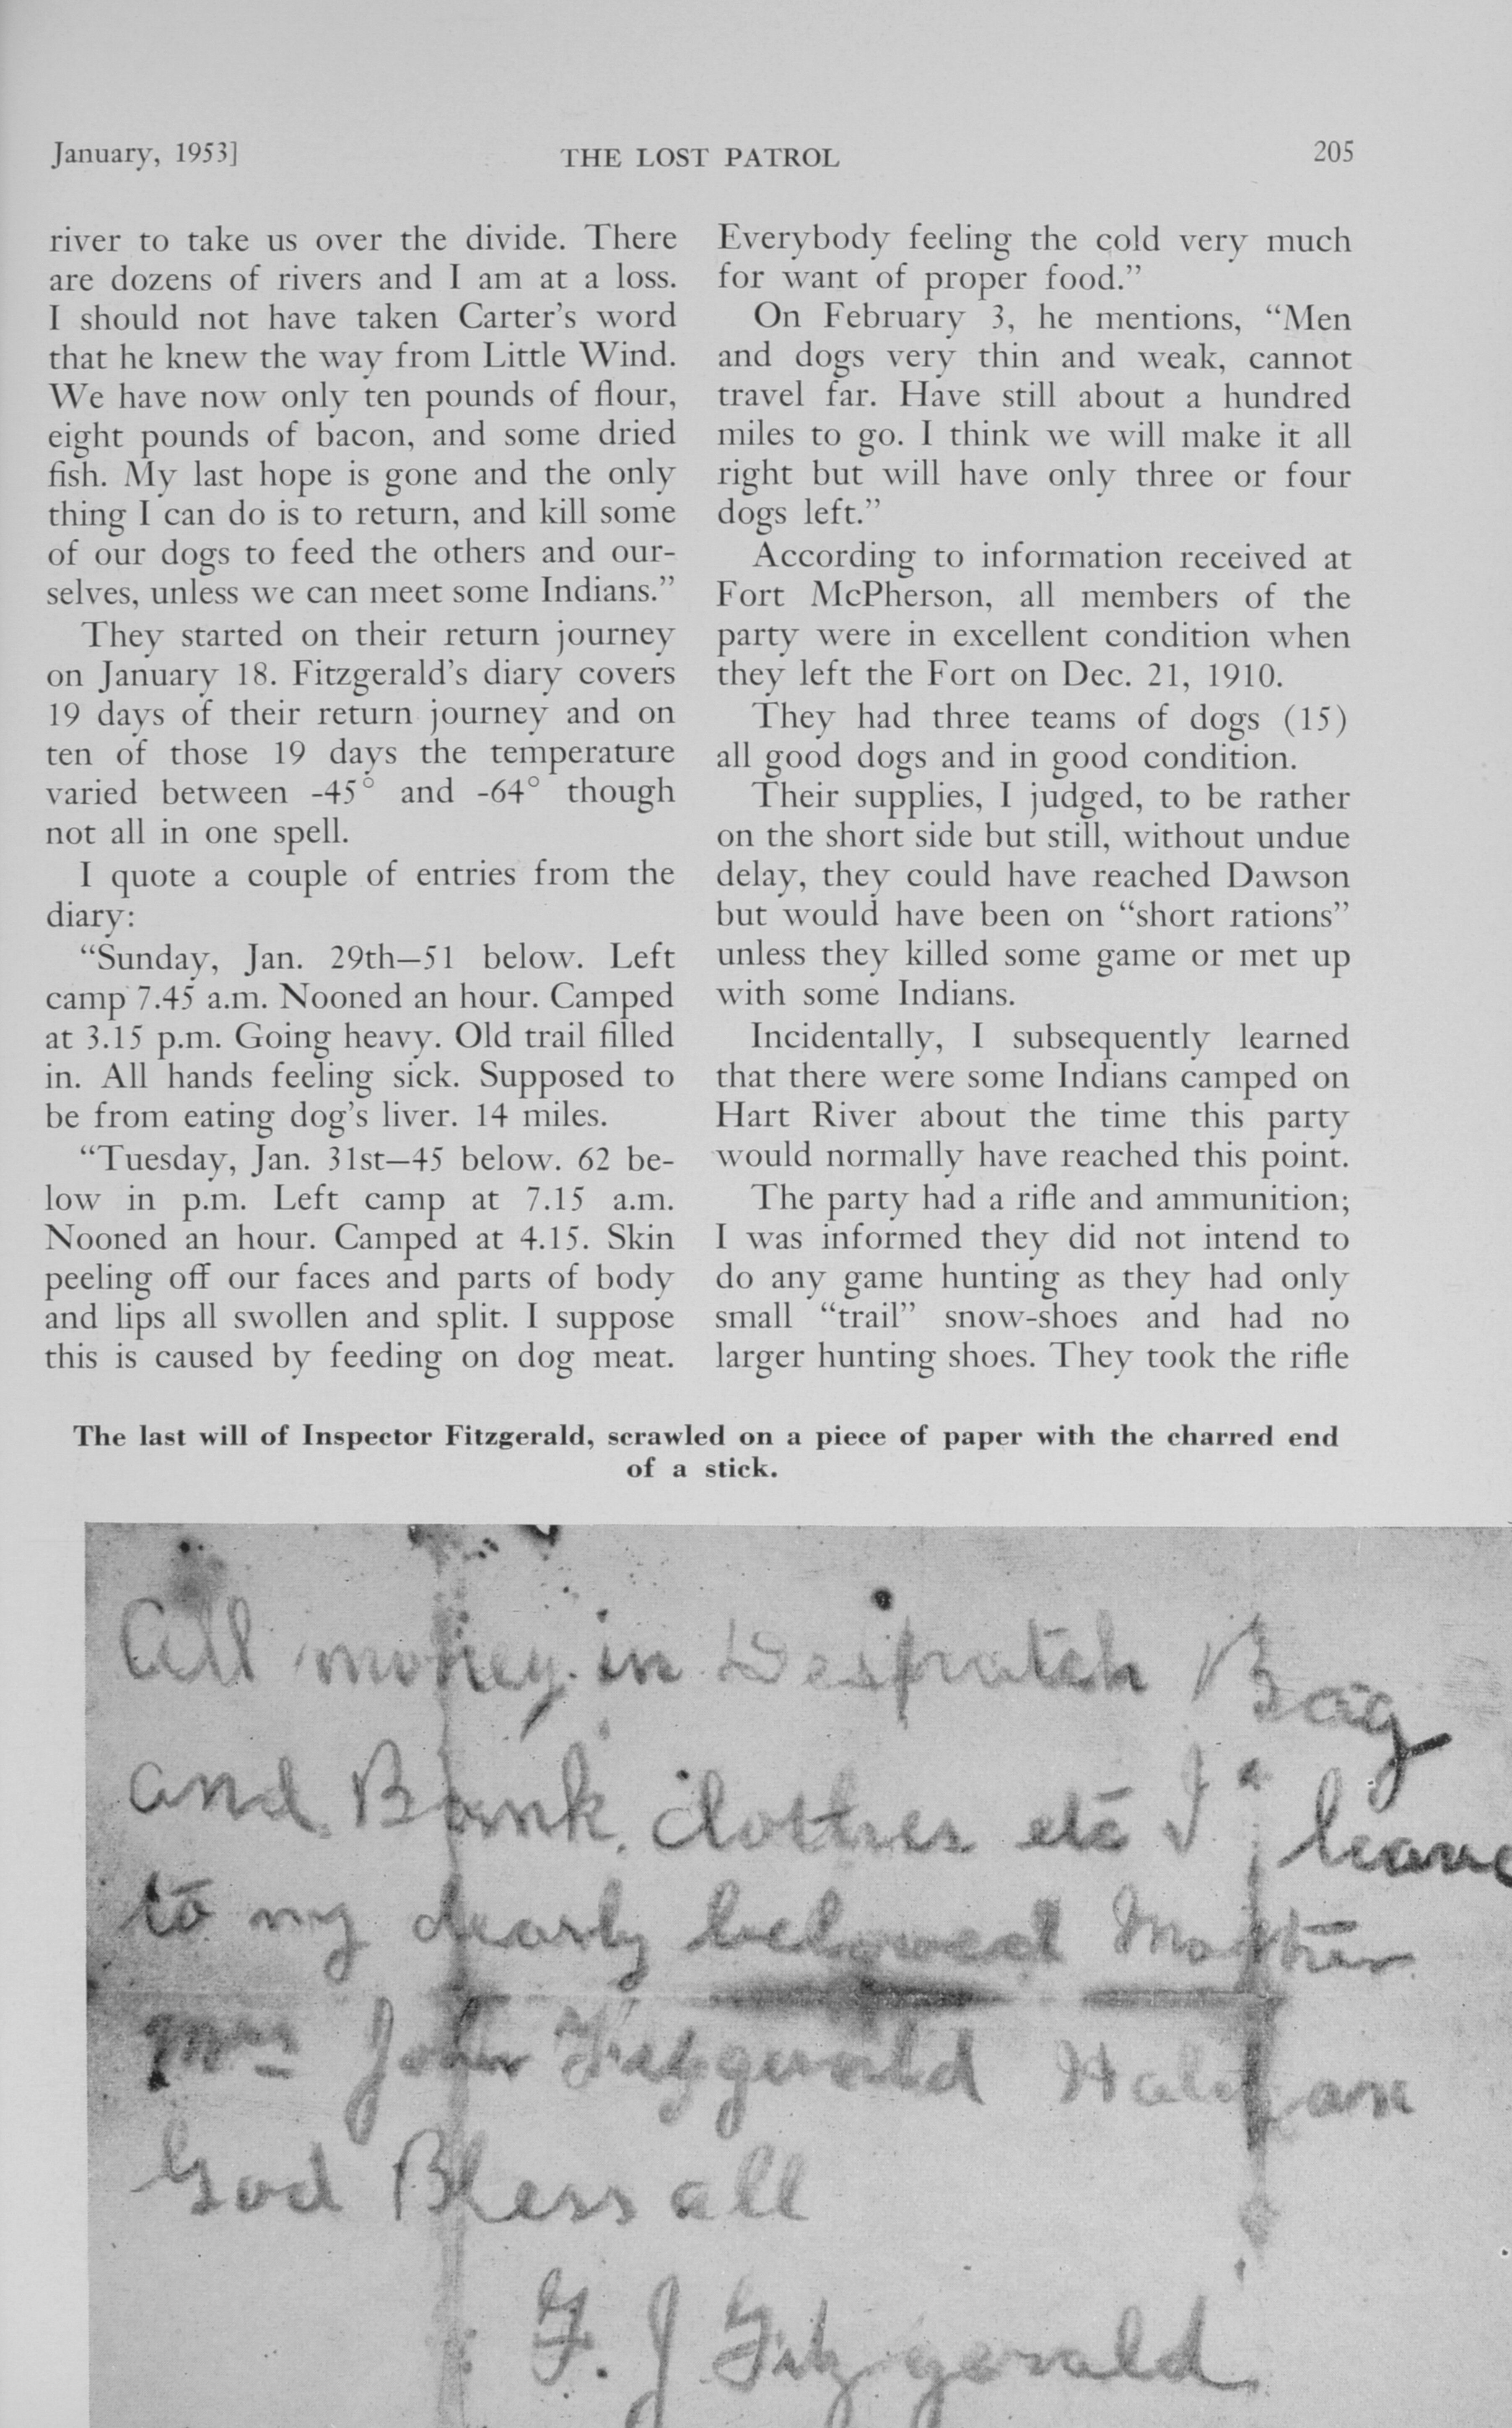 January, 1953]
THE LOST PATROL
205
river to take us over the divide. There
are dozens of rivers and I am at a loss.
I should not have taken Carter's word
that he knew the way from Little Wind.
We have now only ten pounds of flour,
eight pounds of bacon, and some dried
fish. My last hope is gone and the only
thing I can do is to return, and kill some
of our dogs to feed the others and our-
selves, unless we can meet some Indians."
They started on their return journey
on January 18. Fitzgerald's diary covers
19 days of their return journey and on
ten of those 19 days the temperature
varied between -45° and -64° though
not all in one spell.
I quote a couple of entries from the
diary:
"Sunday, Jan. 29th—51 below. Left
camp 7.45 a.m. Nooned an hour. Camped
at 3.15 p.m. Going heavy. Old trail filled
in. All hands feeling sick. Supposed to
be from eating dog's liver. 14 miles.
"Tuesday, Jan. 31st—45 below. 62 be-
low in p.m. Left camp at 7.15 a.m.
Nooned an hour. Camped at 4.15. Skin
peeling off our faces and parts of body
and lips all swollen and split. I suppose
this is caused by feeding on dog meat.
Everybody feeling the cold very much
for want of proper food."
On February 3, he mentions, "Men
and dogs very thin and weak, cannot
travel far. Have still about a hundred
miles to go. I think we will make it all
right but will have only three or four
dogs left."
According to information received at
Fort McPherson, all members of the
party were in excellent condition when
they left the Fort on Dec. 21, 1910.
They had three teams of dogs (15)
all good dogs and in good condition.
Their supplies, I judged, to be rather
on the short side but still, without undue
delay, they could have reached Dawson
but would have been on "short rations"
unless they killed some game or met up
with some Indians.
Incidentally, I subsequently learned
that there were some Indians camped on
Hart River about the time this party
would normally have reached this point.
The party had a rifle and ammunition;
I was informed they did not intend to
do any game hunting as they had only
small "trail" snow-shoes and had no
larger hunting shoes. They took the rifle
The last will of Inspector Fitzgerald, scrawled on a piece of paper with the charred end
of a stick.
All money in Despatch Bag
and Bank, clothes etc I leave
to my dearly beloved Mother
Mrs John Fitzgerald Halifax
God Bless all
F. J Fitzgerald